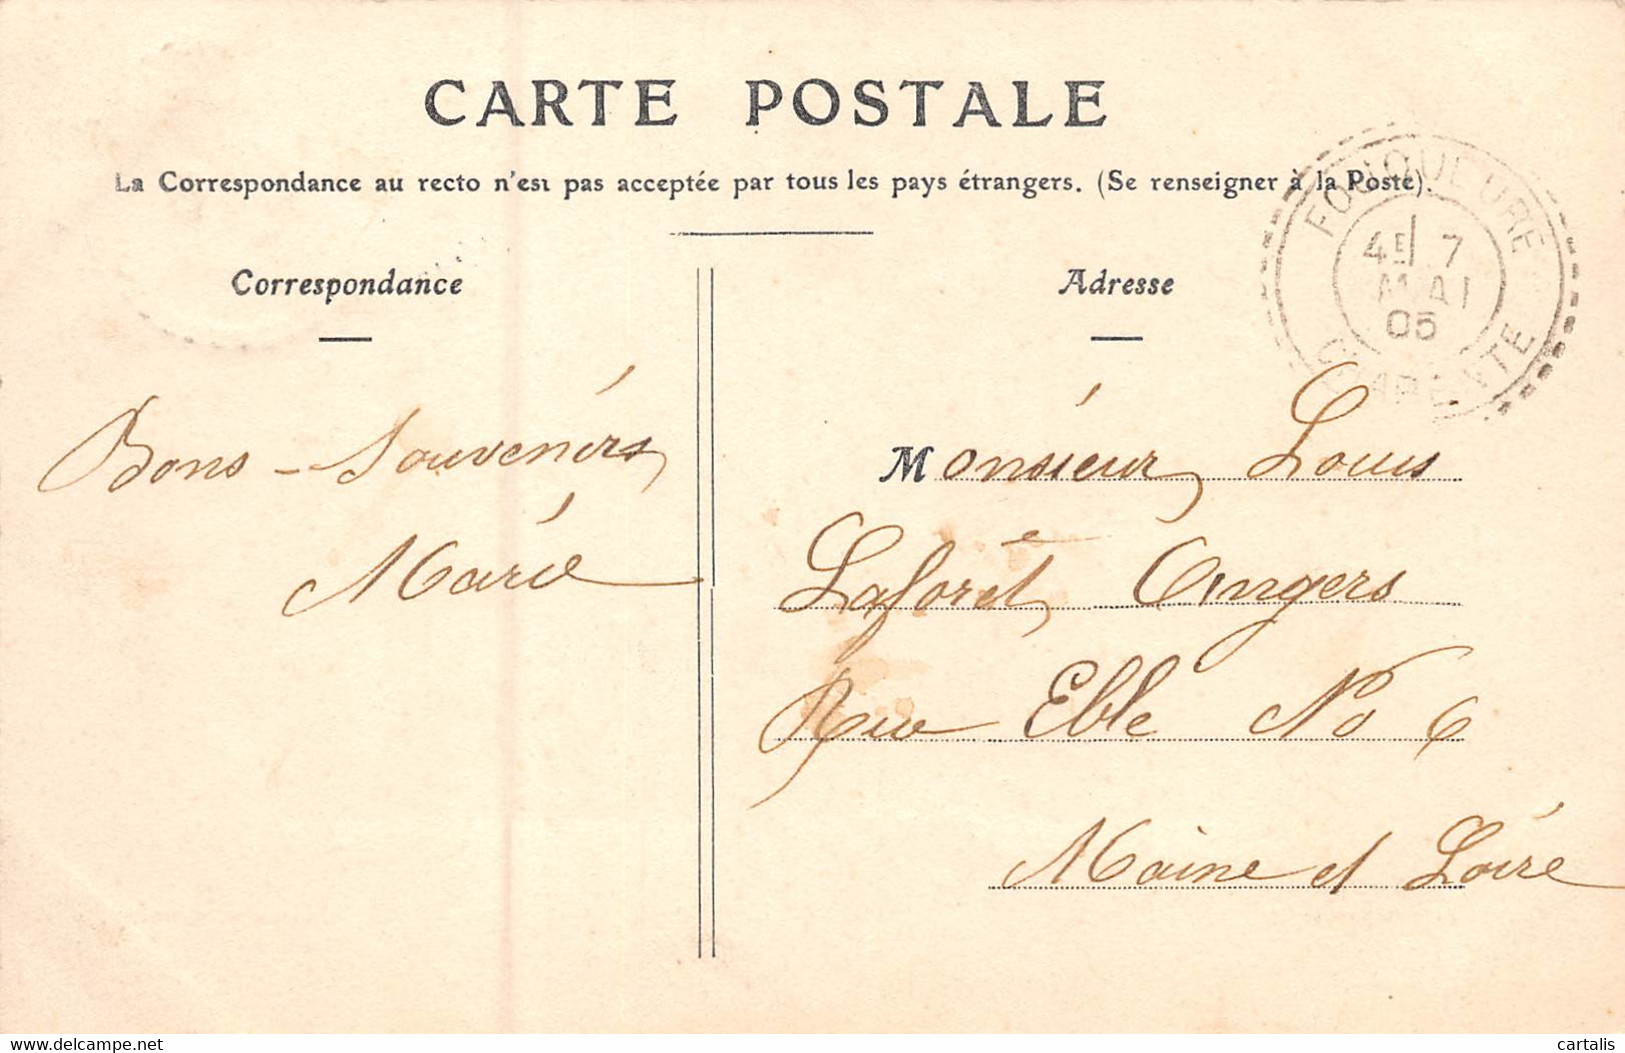 CARTE POSTALE
La Correspondance au recto n'est pas acceptée par tous les pays étrangers. (Se renseigner à la Poste).
Correspondance
Adresse
FOUQUEURE
4E 7
MAI
05
CHARENTE
Bons - Souvenirs
Marie
Monsieur Louis
Laforêt Angers
Rue Eblé No 6
Maine et Loire
www.delcampe.net
cartalis